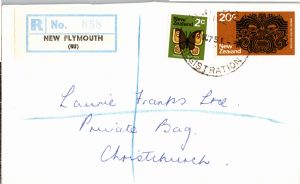 R No. 858
NEW PLYMOUTH
New Zealand 2c
20c
New Zealand
REGISTRATION
Laurie Franks Ltd.
Private Bag.
Christchurch